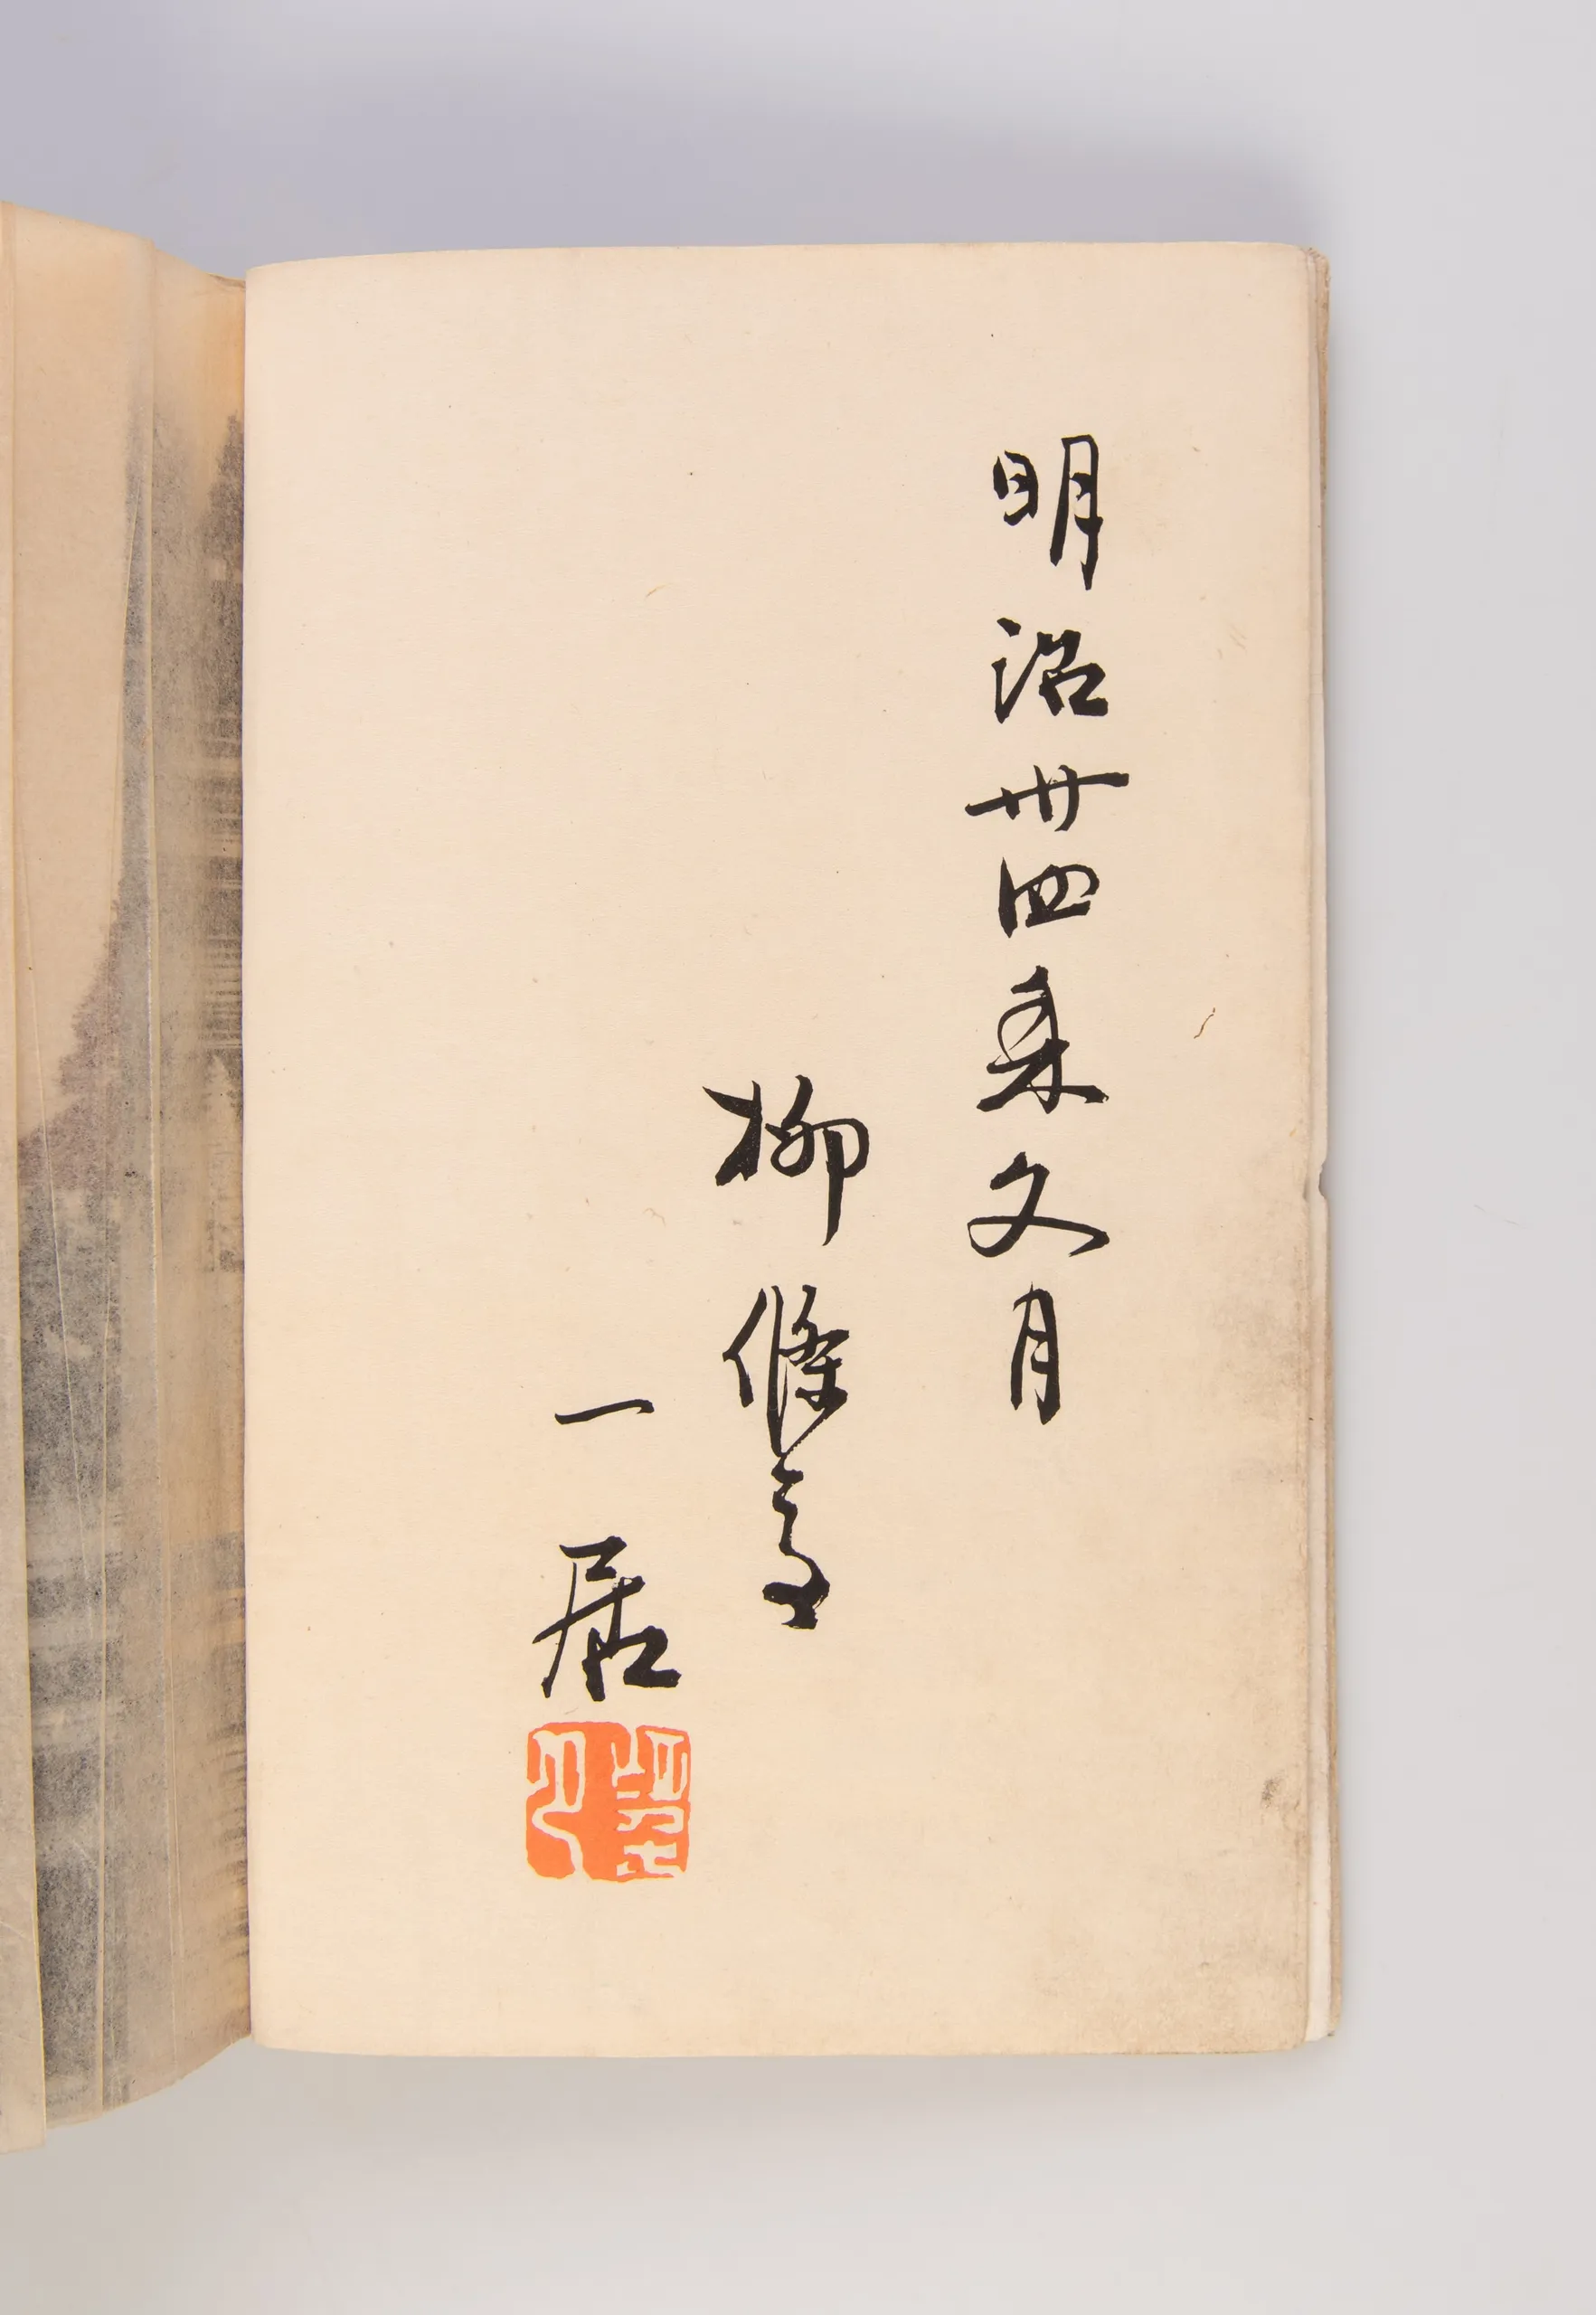 明治卅四年文月
柳條亭
一居